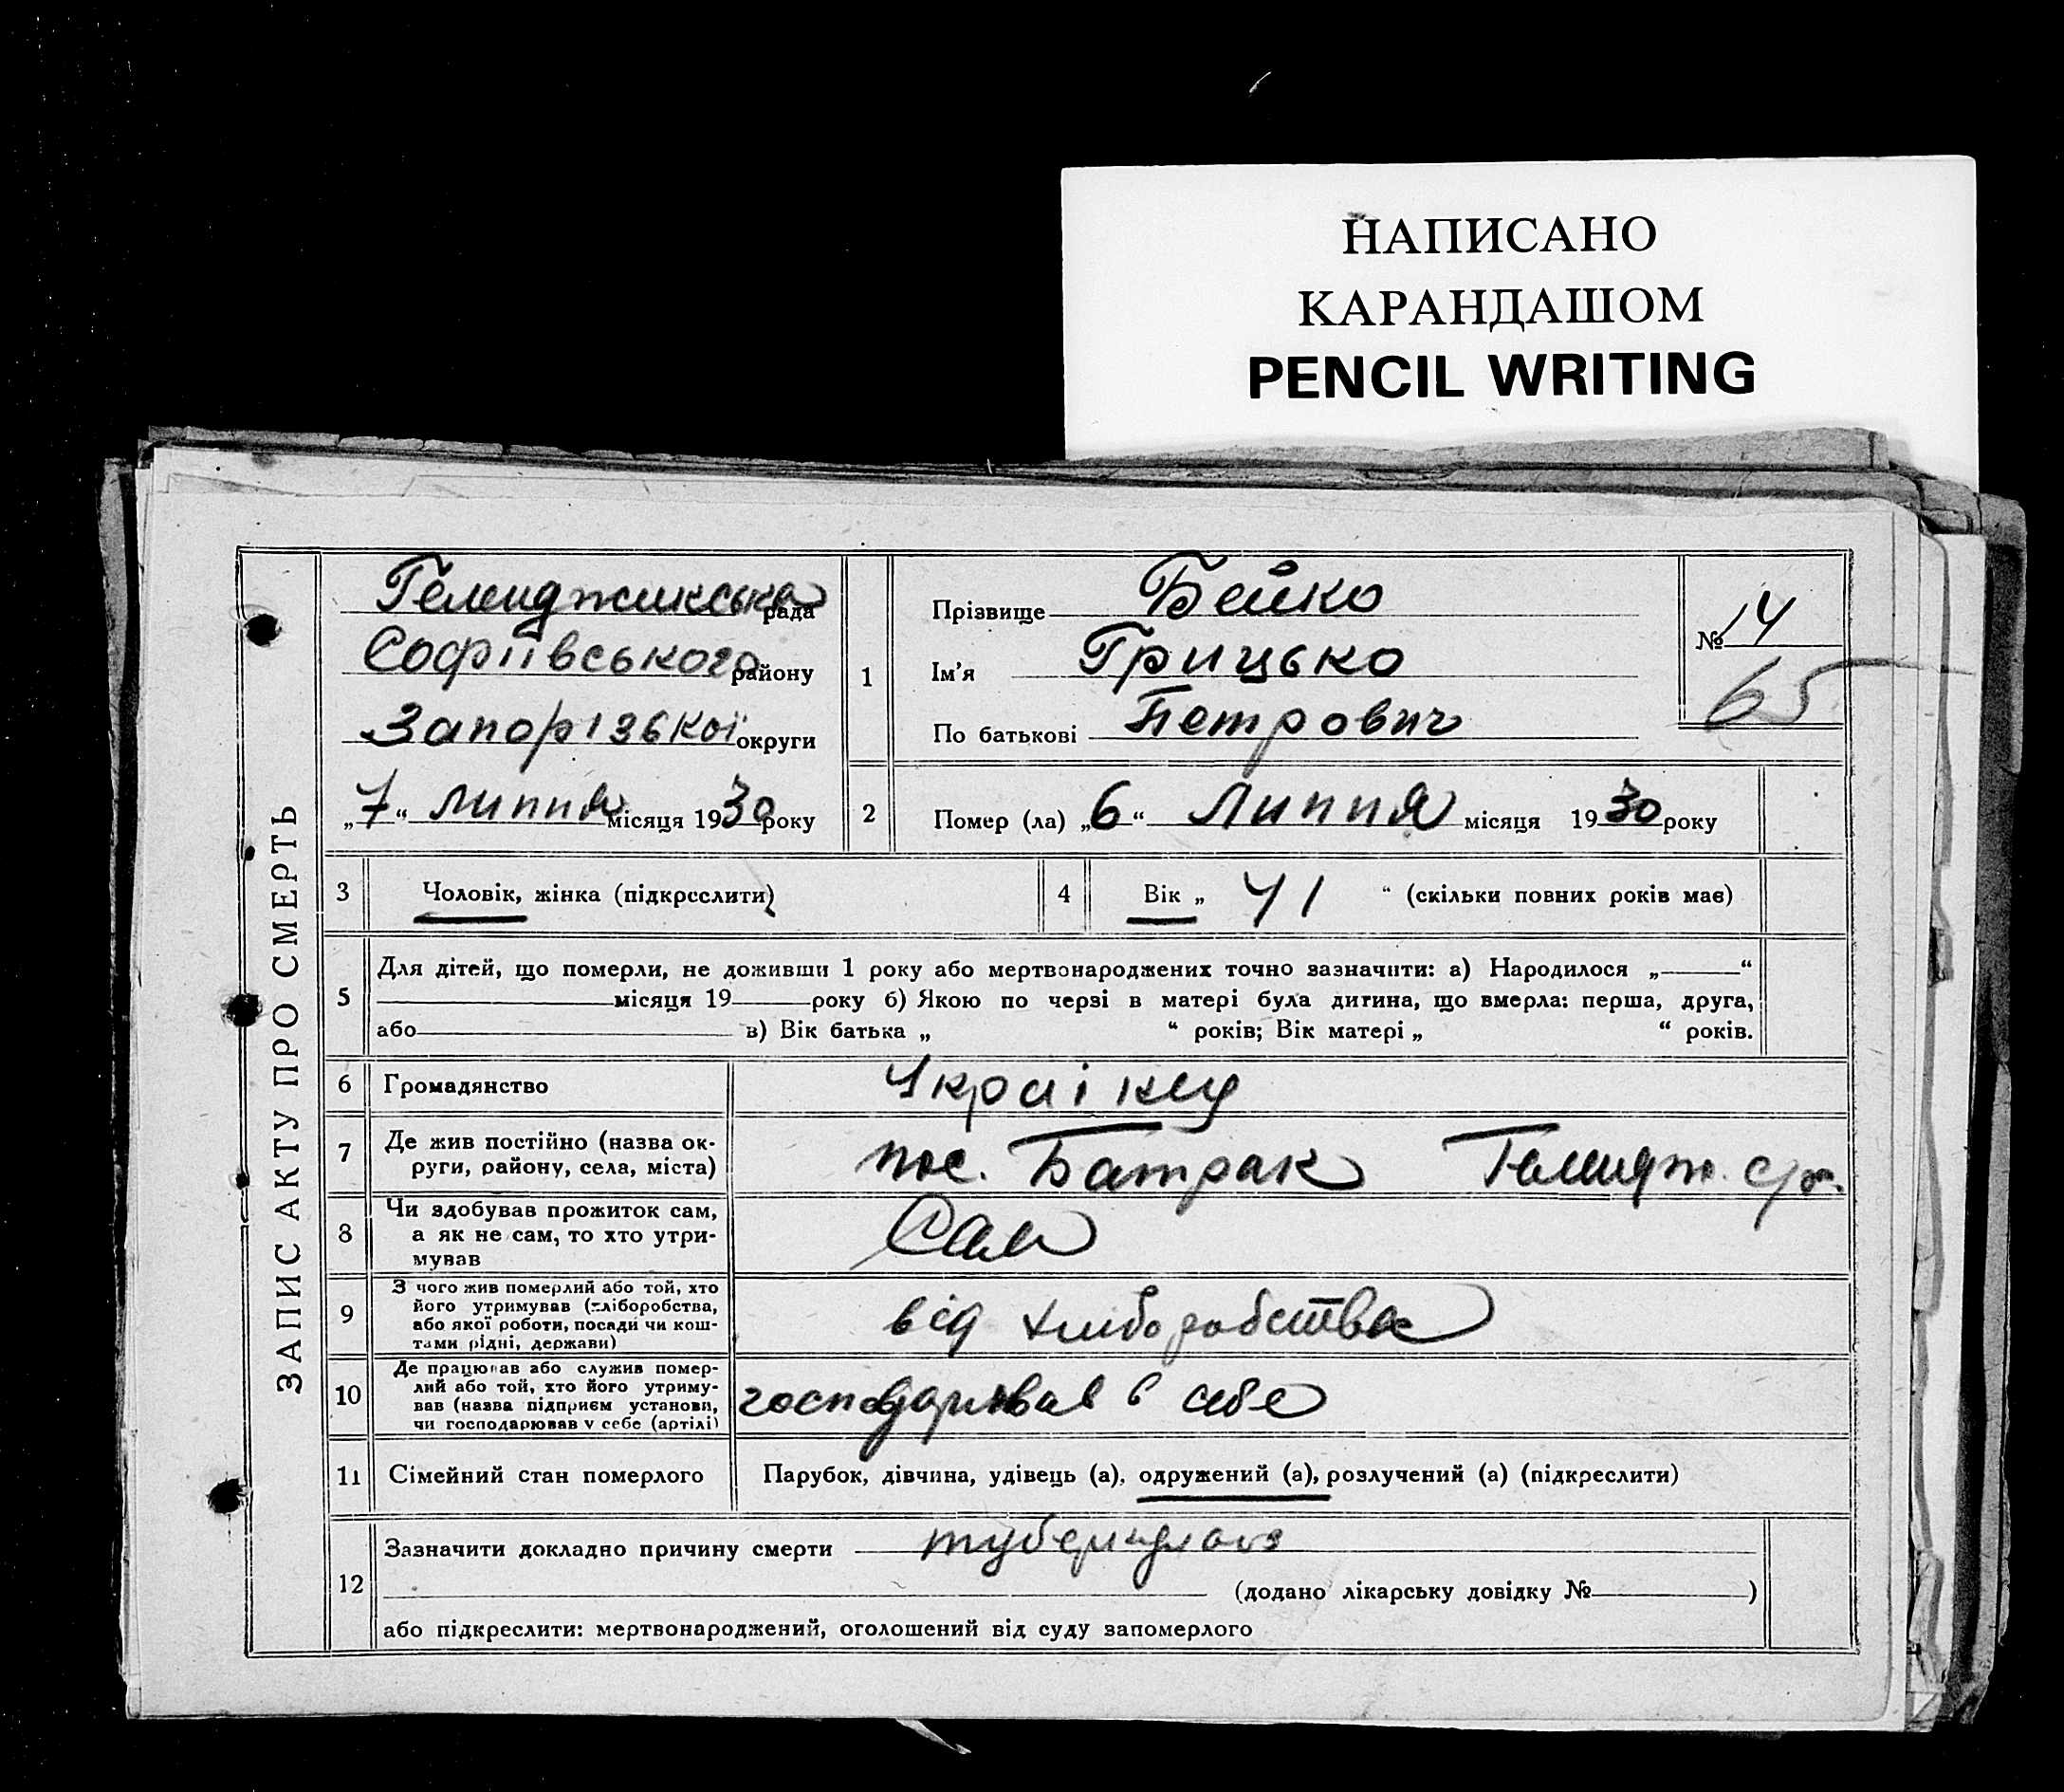 НАПИСАНО
КАРАНДАШОМ
PENCIL WRITING
ЗАПИС АКТУ ПРО СМЕРТЬ
рада
Софіївського району
Запорізької округи
„7“ липня місяця 1930 року
1
Прізвище Бейко
Ім'я Грицько
По батькові Петрович
№ 14
65
2
Помер (ла) „6“ липня місяця 1930 року
3 Чоловік, жінка (підкреслити)
4 Вік „ 41 “ (скільки повних років має)
5 Для дітей, що померли, не доживши 1 року або мертвонароджених точно зазначити: а) Народилося „ “
місяця 19 року б) Якою по черзі в матері була дитина, що вмерла: перша, друга,
або в) Вік батька „ “ років; Вік матері „ “ років.
6 Громадянство
7 Де жив постійно (назва ок-
руги, району, села, міста)
пос. Батрак
8 Чи здобував прожиток сам,
а як не сам, то хто утри-
мував
Сам
9 З чого жив померлий або той, хто
його утримував (хліборобства,
або якої роботи, посади чи кош-
тами рідні, держави)
від хліборобства
10 Де працював або служив помер-
лий або той, хто його утриму-
вав (назва підприєм установи,
чи господарював у себе (артілі)
господарював в себе
11 Сімейний стан померлого Парубок, дівчина, удівець (а), одружений (а), розлучений (а) (підкреслити)
12 Зазначити докладно причину смерти туберкульоз
(додано лікарську довідку № )
або підкреслити: мертвонароджений, оголошений від суду запомерлого